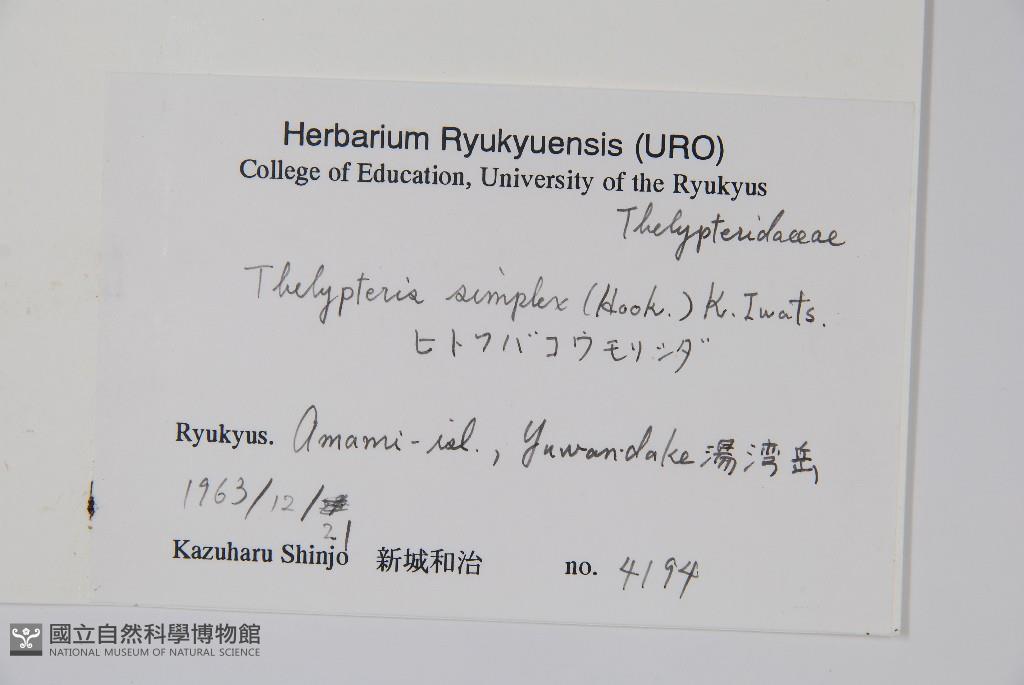 Herbarium Ryukyuensis (URO)
College of Education, University of the Ryukyus
Thelypteridaceae
Thelypteris simplex (Hook.) K. Iwats.
ヒトツバコウモリシダ
Ryukyus. Amami-isl., Yuwandake 湯湾岳
1963/12/
21
Kazuharu Shinjo 新城和治 no. 4194
國立自然科學博物館
NATIONAL MUSEUM OF NATURAL SCIENCE